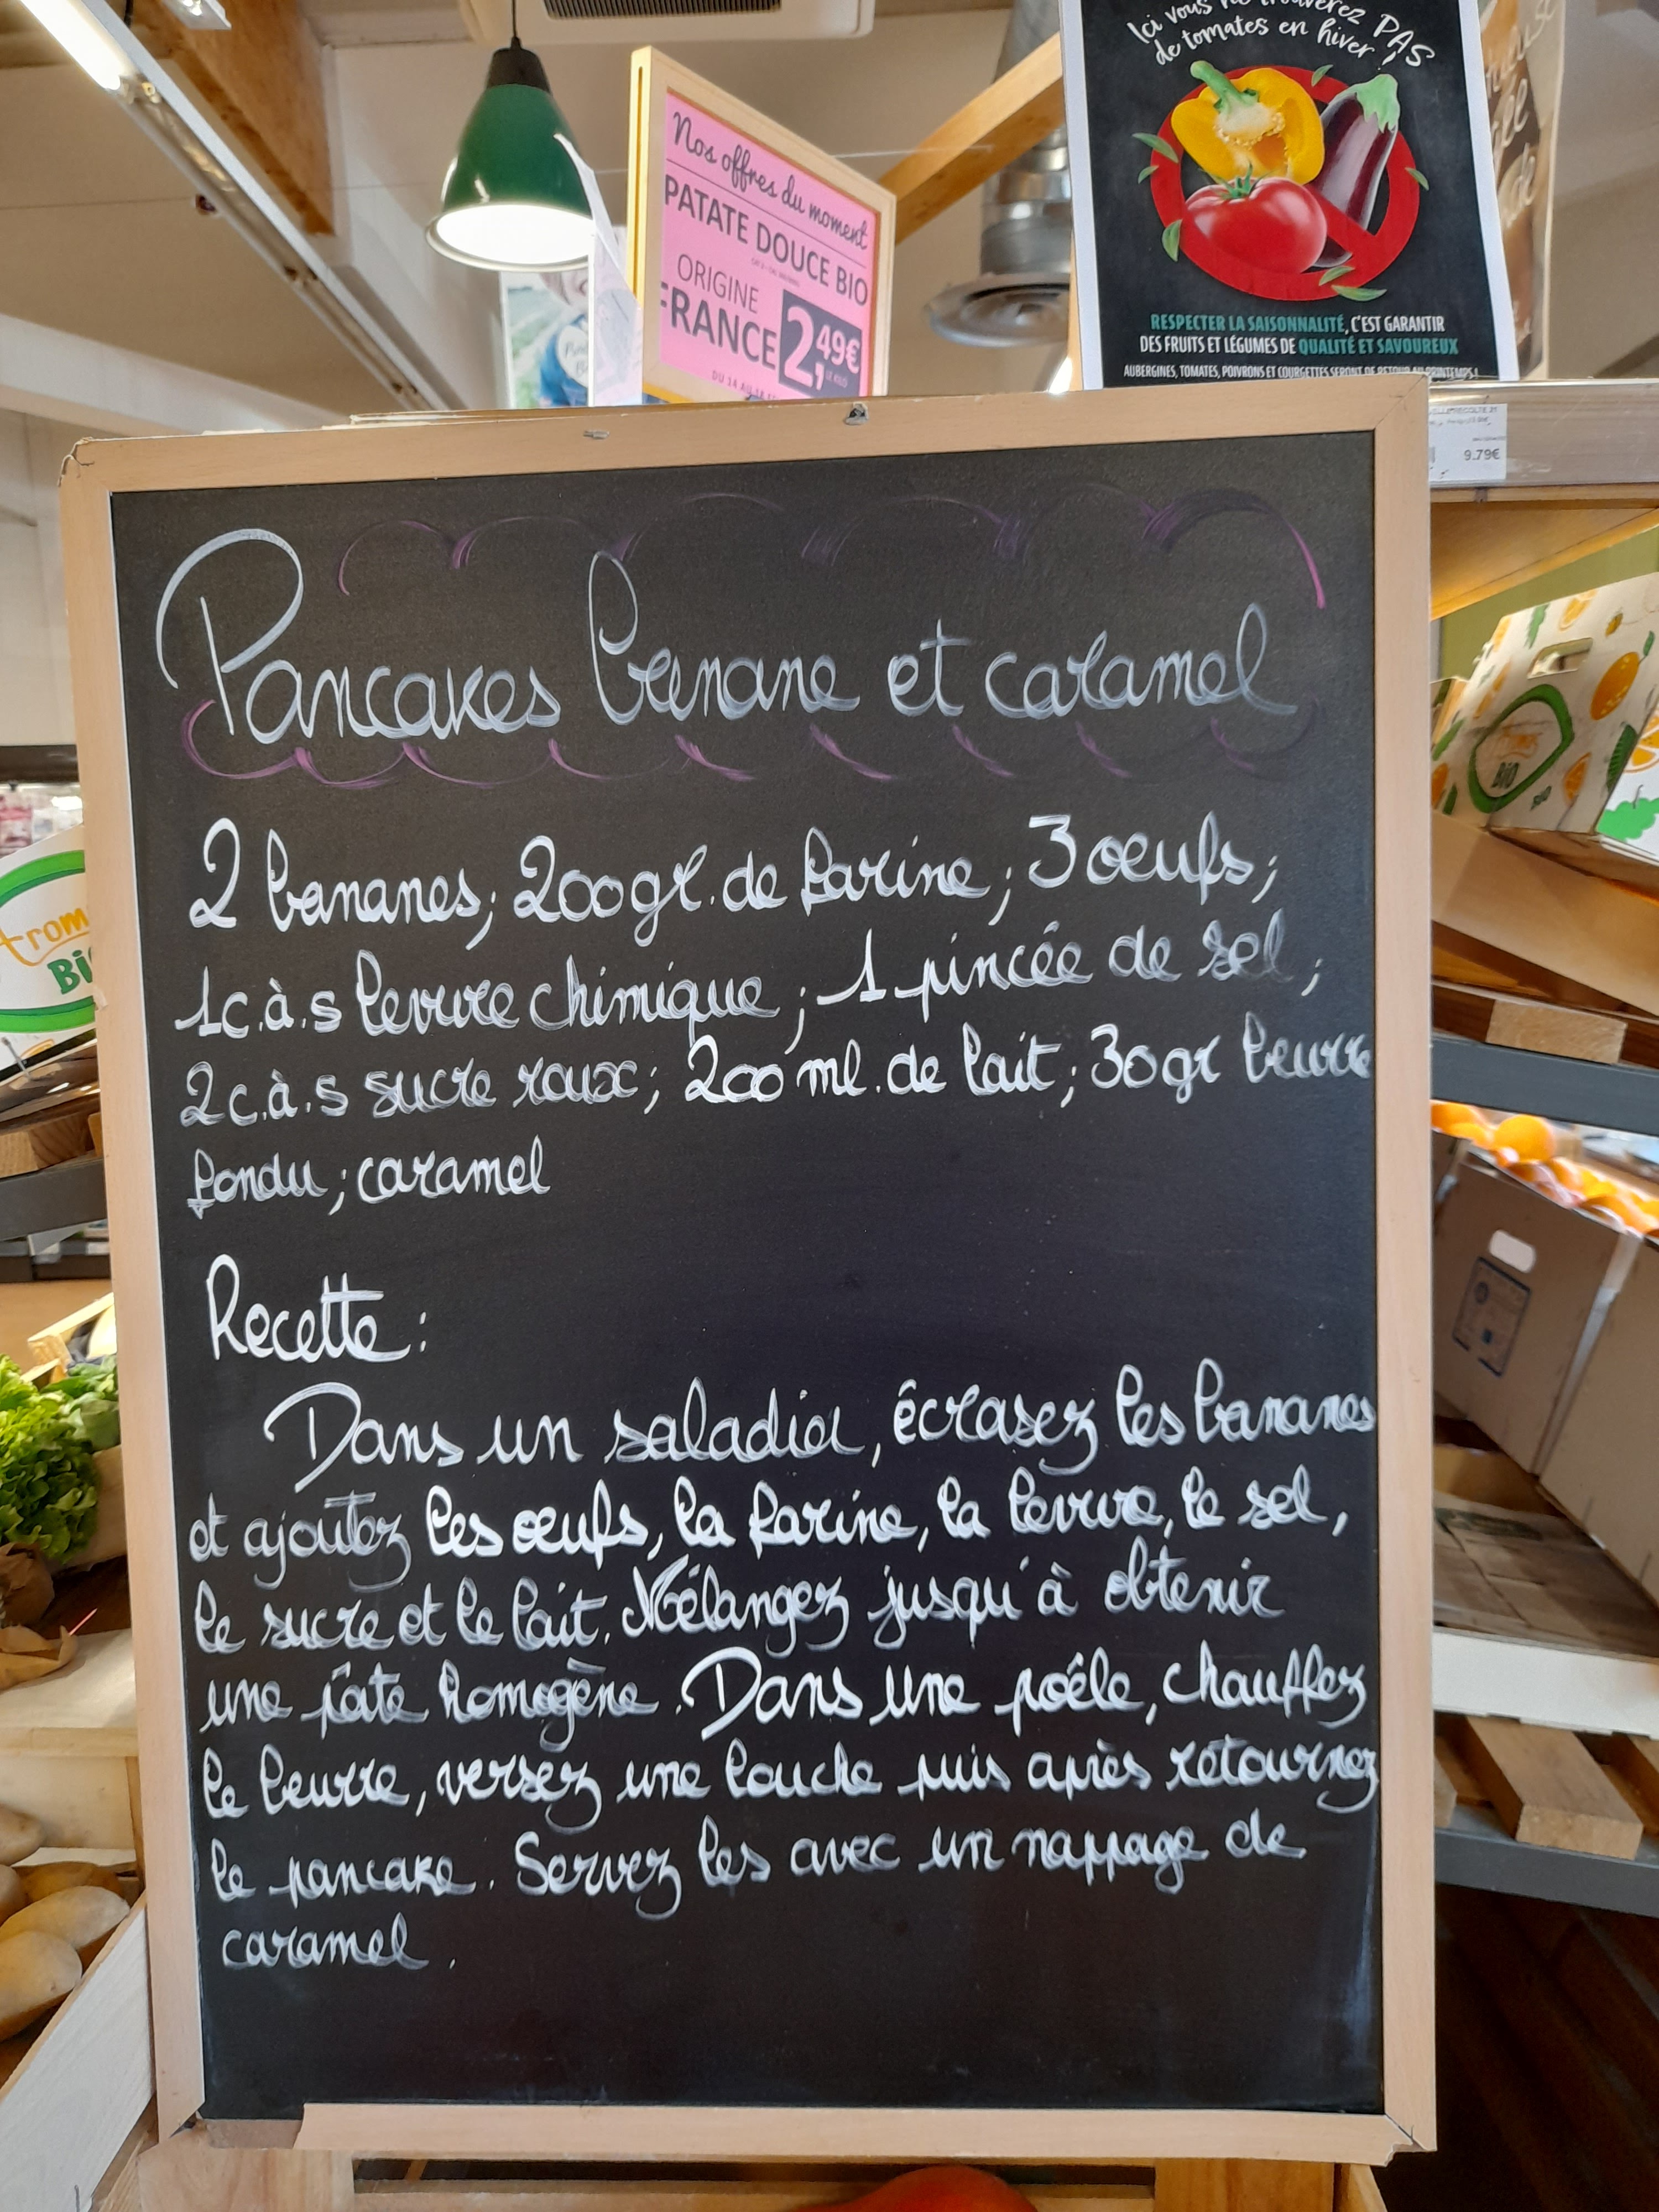 Ici vous ne trouverez PAS
de tomates en hiver !
RESPECTER LA SAISONNALITÉ, C'EST GARANTIR
DES FRUITS ET LÉGUMES DE QUALITÉ ET SAVOUREUX
AUBERGINES, TOMATES, POIVRONS ET COURGETTES SERONT DE RETOUR AU PRINTEMPS !
Nos offres du moment
PATATE DOUCE BIO
ORIGINE
FRANCE
2,49€
LE KILO
DU 14 AU
9.79€
Pancakes banane et caramel
2 bananes; 200gr. de farine; 3 œufs;
1c.à.s levure chimique; 1 pincée de sel;
2c.à.s sucre roux; 200 ml. de lait; 30gr beurre
fondu; caramel
Recette :
Dans un saladier, écrasez les bananes
et ajoutez les œufs, la farine, la levure, le sel,
le sucre et le lait. Mélangez jusqu'à obtenir
une pâte homogène. Dans une poêle, chauffez
le beurre, versez une louche puis après retournez
le pancake. Servez les avec un nappage de
caramel.
BIO